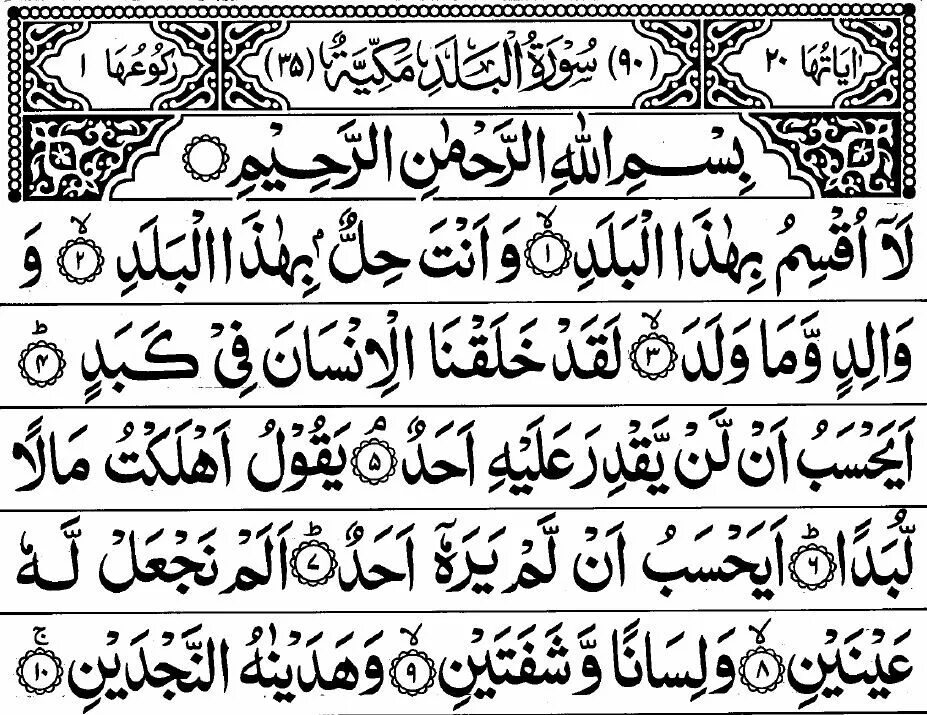 اٰيَاتُهَا ٢٠ (٩٠) سُوْرَةُ الْبَلَدِ مَكِّيَّةٌ (٣٥) رَكُوْعُهَا ١
بِسْمِ اللهِ الرَّحْمٰنِ الرَّحِيْمِ
لَاۤ اُقْسِمُ بِهٰذَا الْبَلَدِ ۙ﴿١﴾ وَ اَنْتَ حِلٌّۢ بِهٰذَا الْبَلَدِ ۙ﴿٢﴾ وَ
وَالِدٍ وَّمَا وَلَدَ ۙ﴿٣﴾ لَقَدْ خَلَقْنَا الْاِنْسَانَ فِيْ كَبَدٍ ؕ﴿۴﴾
اَيَحْسَبُ اَنْ لَّنْ يَّقْدِرَ عَلَيْهِ اَحَدٌ ۘ﴿۵﴾ يَقُوْلُ اَهْلَكْتُ مَالًا
لُّبَدًا ؕ﴿۶﴾ اَيَحْسَبُ اَنْ لَّمْ يَرَهٗۤ اَحَدٌ ؕ﴿۷﴾ اَلَمْ نَجْعَلْ لَّهٗ
عَيْنَيْنِ ۙ﴿٨﴾ وَلِسَانًا وَّشَفَتَيْنِ ۙ﴿٩﴾ وَهَدَيْنٰهُ النَّجْدَيْنِ ۚ﴿١٠﴾